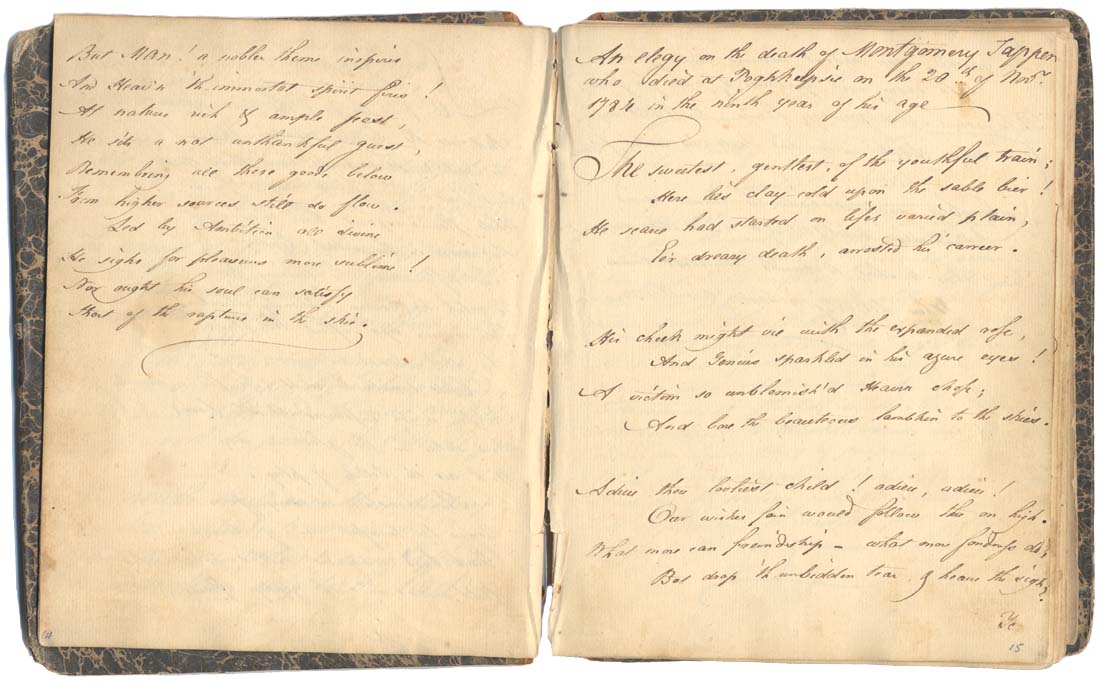 But Man! a nobler theme inspires
And Heav'n th' immortal spirit fires!
At natures rich & ample feast,
He sits a not unthankful guest,
Remembring all these goods below
From higher sources still do flow.
Led by Ambition all divine
He sighs for pleasures more sublime!
Nor ought his soul can satisfy
Short of th' rapture in the skies.
14
An elegy on the death of Montgomery Tappen
who died at Poghkeepsie on the 20th of Novr.
1784 in the ninth year of his age
The sweetest, gentlest, of the youthful train;
Here lies clay-cold upon the sable bier!
He scarce had started on life's varied plain,
E'er dreary death, arrested his carreer.
His cheek might vie with the expanded rose,
And Genius sparkled in his azure eyes!
A victim so unblemish'd Heaven chose;
And bore the beauteous lambkin to the skies.
Adieu thou lovliest child! adieu, adieu!
Our wishes fain would follow thee on high.
What more can freindship - what more fondness do;
But drop th' unbidden tear & heave the sigh?
Ye
15